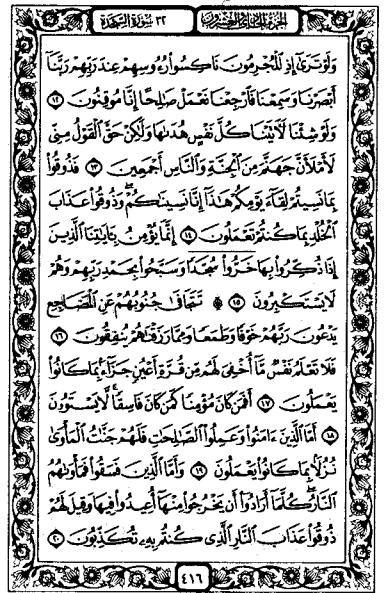 الجزء الحادي والعشرون ٣٢ سورة السجدة
وَلَوْ تَرَىٰٓ إِذِ ٱلْمُجْرِمُونَ نَاكِسُوا۟ رُءُوسِهِمْ عِندَ رَبِّهِمْ رَبَّنَآ
أَبْصَرْنَا وَسَمِعْنَا فَٱرْجِعْنَا نَعْمَلْ صَٰلِحًا إِنَّا مُوقِنُونَ ١٢
وَلَوْ شِئْنَا لَءَاتَيْنَا كُلَّ نَفْسٍ هُدَىٰهَا وَلَٰكِنْ حَقَّ ٱلْقَوْلُ مِنِّى
لَأَمْلَأَنَّ جَهَنَّمَ مِنَ ٱلْجِنَّةِ وَٱلنَّاسِ أَجْمَعِينَ ١٣ فَذُوقُوا۟
بِمَا نَسِيتُمْ لِقَآءَ يَوْمِكُمْ هَٰذَآ إِنَّا نَسِينَٰكُمْ ۖ وَذُوقُوا۟ عَذَابَ
ٱلْخُلْدِ بِمَا كُنتُمْ تَعْمَلُونَ ١٤ إِنَّمَا يُؤْمِنُ بِـَٔايَٰتِنَا ٱلَّذِينَ
إِذَا ذُكِّرُوا۟ بِهَا خَرُّوا۟ سُجَّدًا وَسَبَّحُوا۟ بِحَمْدِ رَبِّهِمْ وَهُمْ
لَا يَسْتَكْبِرُونَ ١٥ ۩ تَتَجَافَىٰ جُنُوبُهُمْ عَنِ ٱلْمَضَاجِعِ
يَدْعُونَ رَبَّهُمْ خَوْفًا وَطَمَعًا وَمِمَّا رَزَقْنَٰهُمْ يُنفِقُونَ ١٦
فَلَا تَعْلَمُ نَفْسٌ مَّآ أُخْفِىَ لَهُم مِّن قُرَّةِ أَعْيُنٍ جَزَآءًۢ بِمَا كَانُوا۟
يَعْمَلُونَ ١٧ أَفَمَن كَانَ مُؤْمِنًا كَمَن كَانَ فَاسِقًا ۚ لَّا يَسْتَوُۥنَ
١٨ أَمَّا ٱلَّذِينَ ءَامَنُوا۟ وَعَمِلُوا۟ ٱلصَّٰلِحَٰتِ فَلَهُمْ جَنَّٰتُ ٱلْمَأْوَىٰ
نُزُلًۢا بِمَا كَانُوا۟ يَعْمَلُونَ ١٩ وَأَمَّا ٱلَّذِينَ فَسَقُوا۟ فَمَأْوَىٰهُمُ
ٱلنَّارُ ۖ كُلَّمَآ أَرَادُوٓا۟ أَن يَخْرُجُوا۟ مِنْهَآ أُعِيدُوا۟ فِيهَا وَقِيلَ لَهُمْ
ذُوقُوا۟ عَذَابَ ٱلنَّارِ ٱلَّذِى كُنتُم بِهِۦ تُكَذِّبُونَ ٢٠
٤١٦